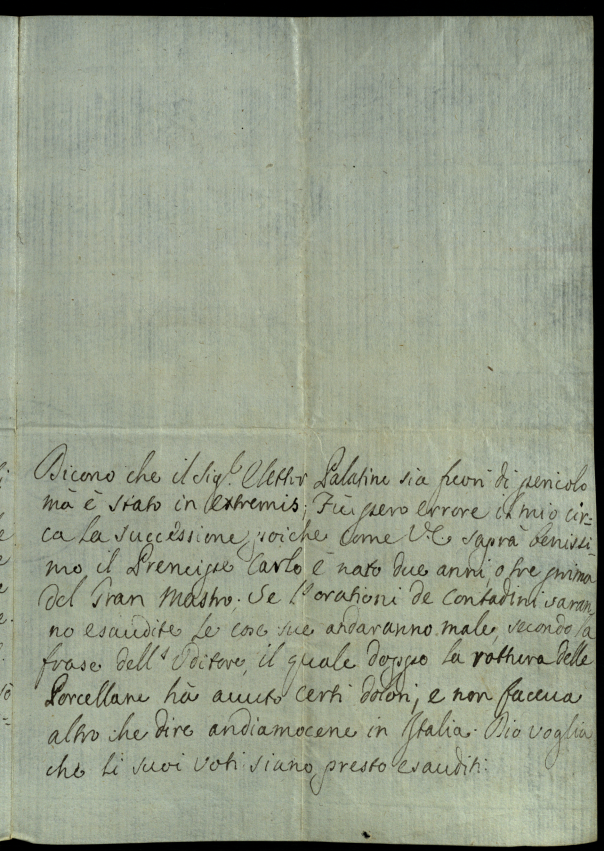 Dicono che il Sig.r Elettor Palatino sia fuori di pericolo
mà è stato in extremis; Fù pero errore il mio cir=
ca la successione, poiche come V.E. saprà beniss=
mo il Prencipe Carlo è nato due anni, o tre prima
del Gran Mastro. Se l'orationi de Contadini saran
no esaudite le cose sue andaranno male, secondo la
frase dell' Uditore, il quale doppo la rottura delle
Porcellane hà auuto certi dolori, e non faceua
altro che dire andiamocene in Italia. Dio voglia
che li suoi voti siano presto esauditi.